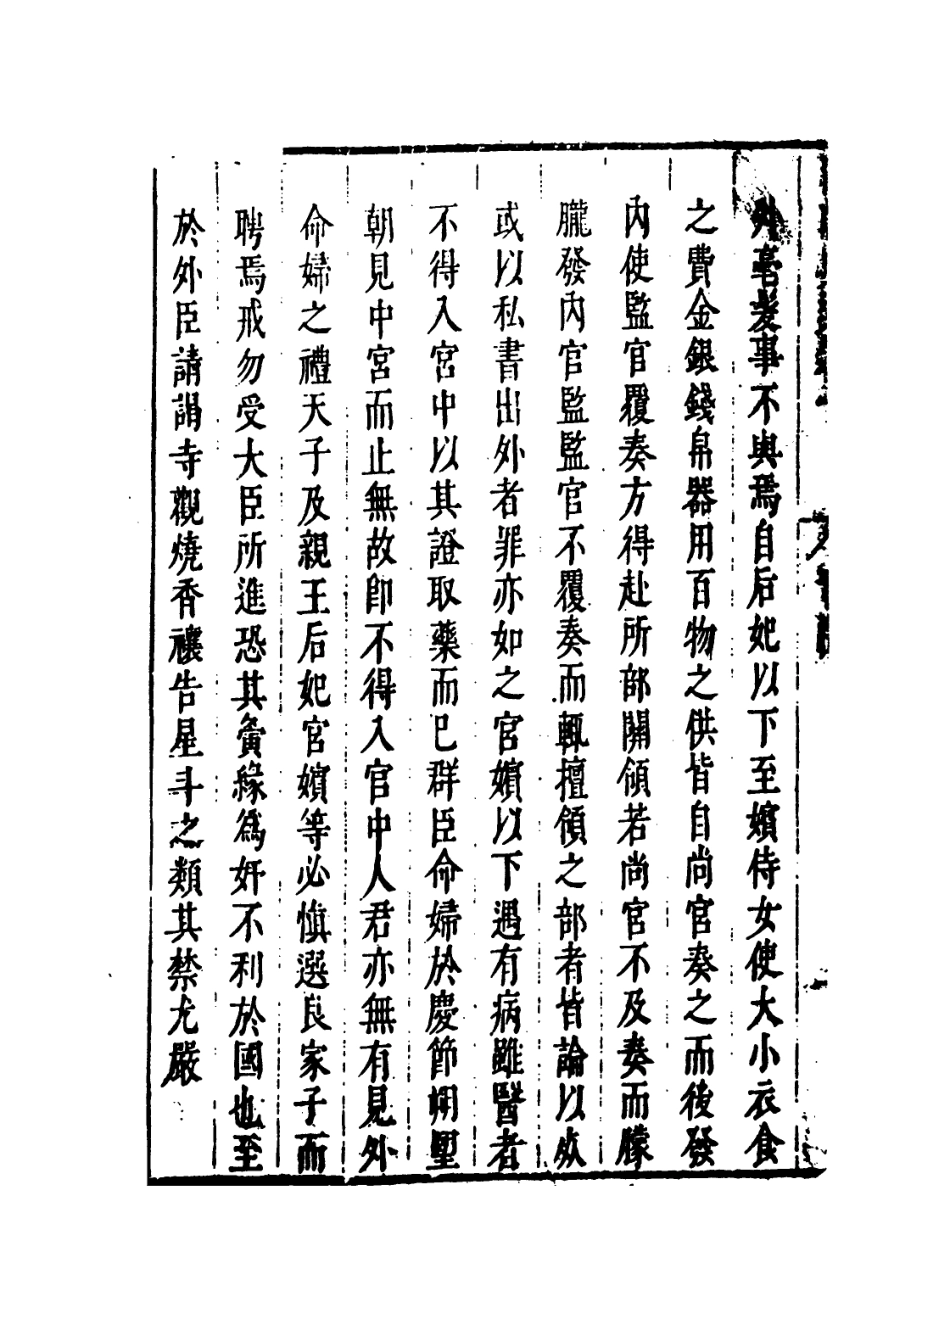 外毫髮事不與焉自后妃以下至嬪侍女使大小衣食
之費金銀錢帛器用百物之供皆自尚官奏之而後發
內使監官覆奏方得赴所部關領若尚官不及奏而朦
朧發內官監監官不覆奏而輒擅領之部者皆論以死
或以私書出外者罪亦如之宮嬪以下遇有病雖醫者
不得入宮中以其證取藥而已群臣命婦於慶節朔望
朝見中宮而止無故即不得入宮中人君亦無有見外
命婦之禮天子及親王后妃宮嬪等必慎選良家子而
聘焉戒勿受大臣所進恐其夤緣為奸不利於國也至
於外臣請謁寺觀燒香禳告星斗之類其禁尤嚴